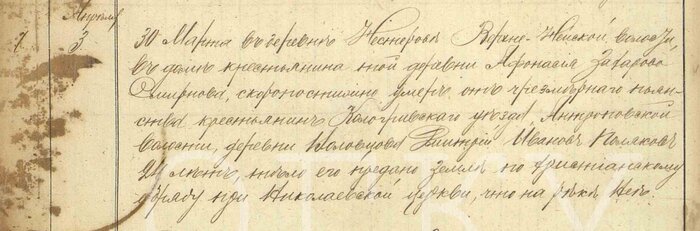 Апрѣля
7 3 30 Марта въ деревнѣ Нестеровѣ Верхне-Нейской волости,
въ домѣ крестьянина той деревни Афонасія Захарова
Смирнова, скоропостижно умеръ отъ чрезмѣрнаго пьян-
ства крестьянинъ Кологривскаго уѣзда, Антроповской
волости, деревни Половцова Дмитрій Ивановъ Поляковъ
24 лѣтъ, тѣло его предано землѣ по христіанскому
обряду при Николаевской церкви, что на рѣкѣ Неѣ.